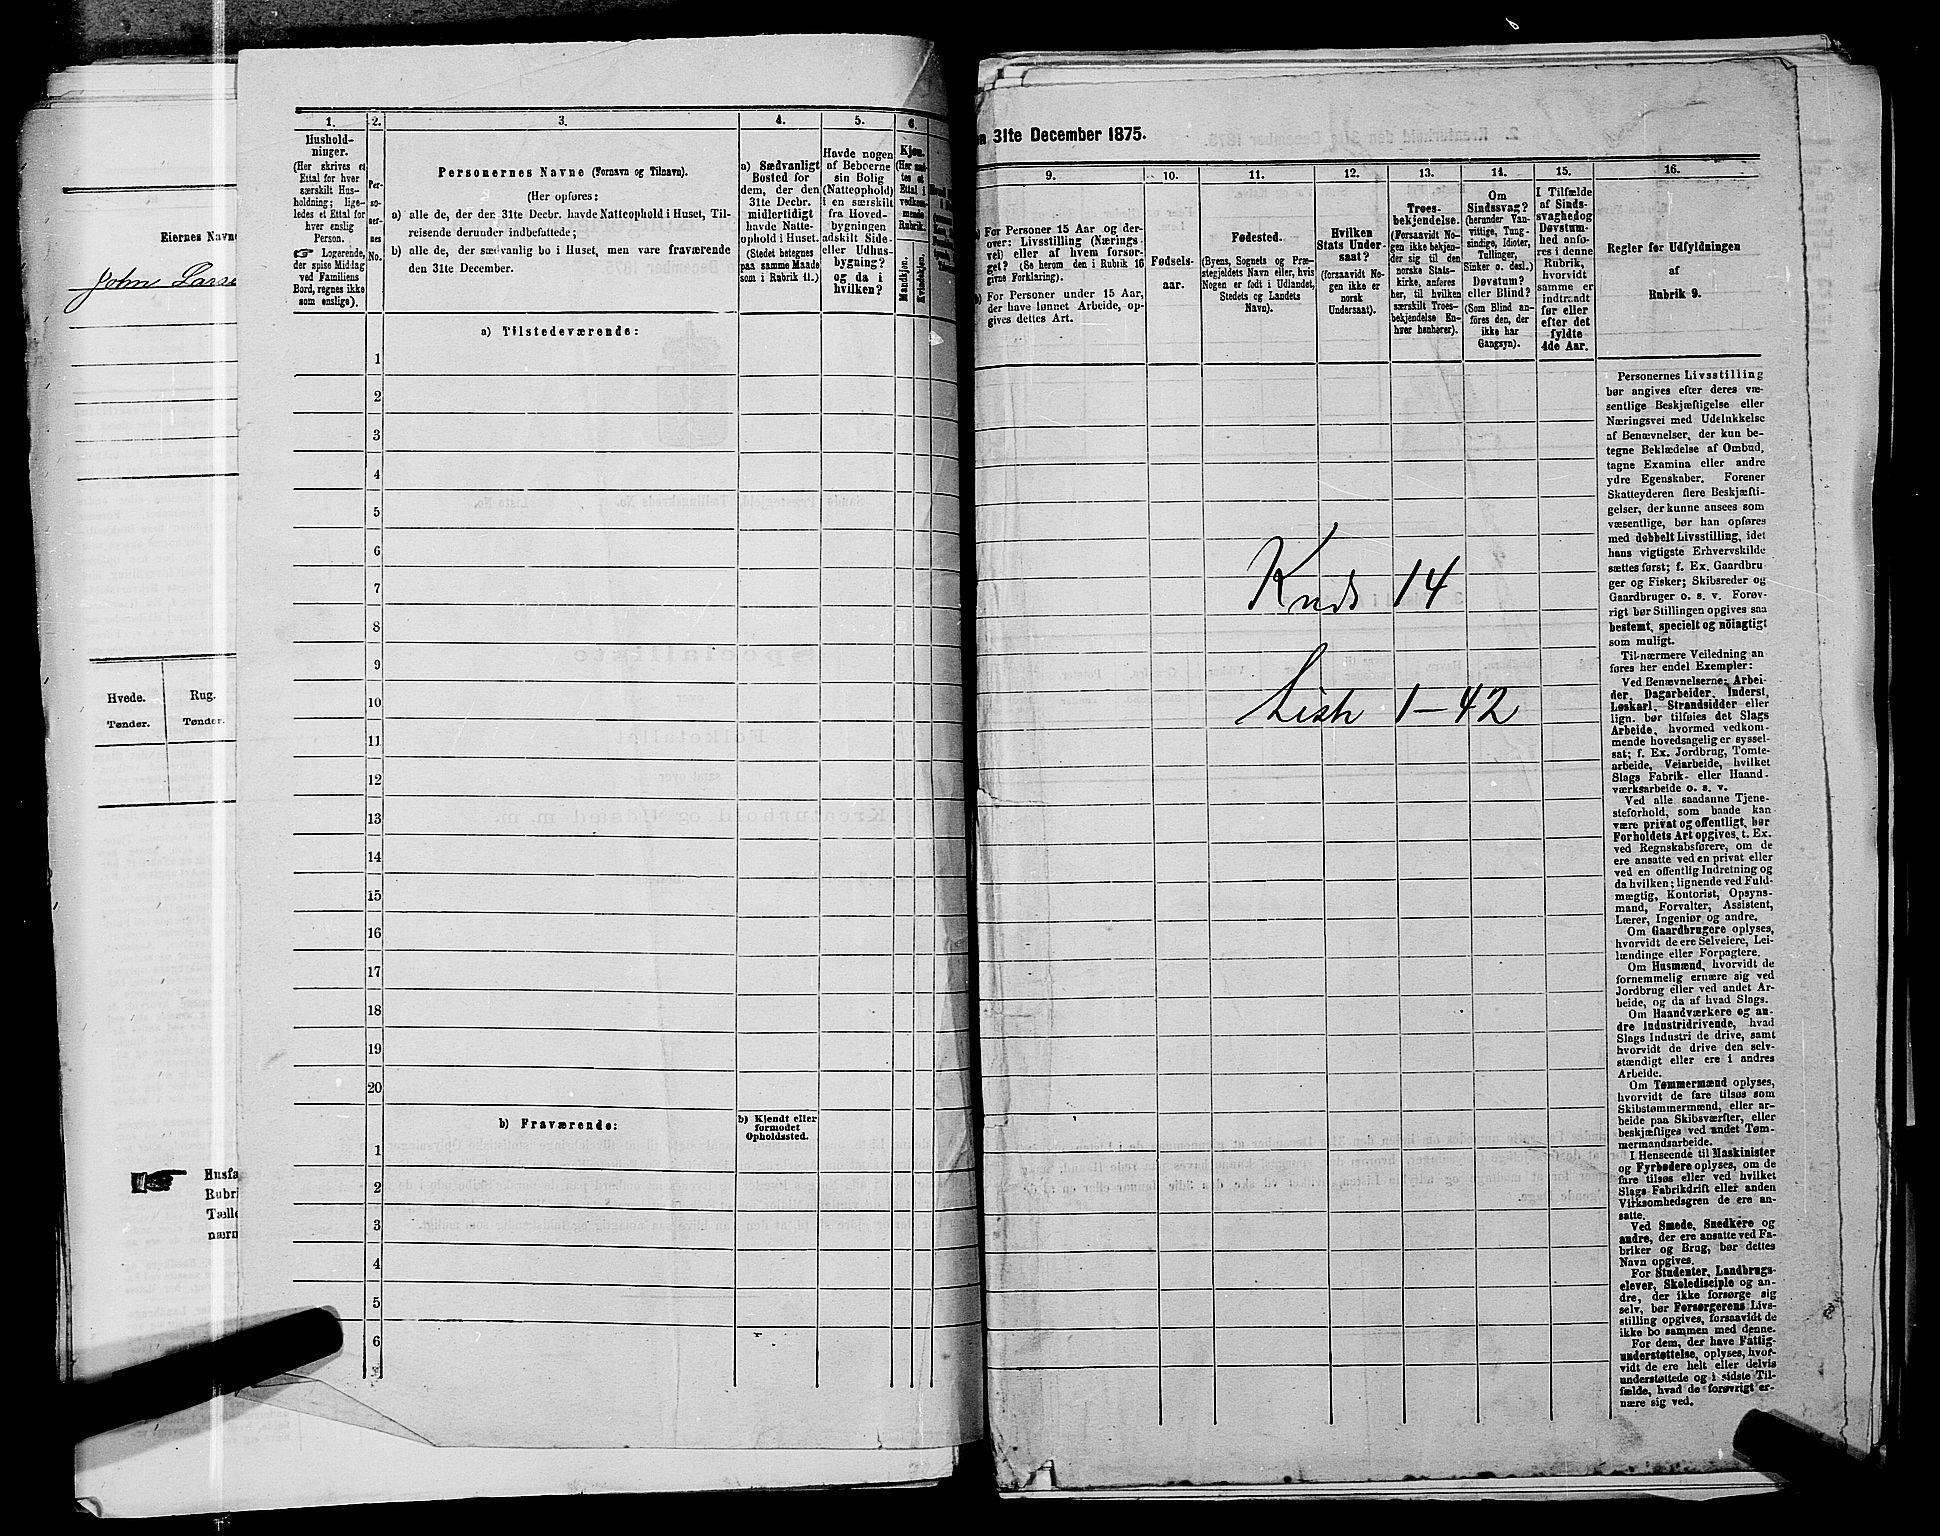 Eiernes Navne
John Larse
Hvede.
Rug.
Tønder.
Tønder.
Husfa
Rubri
Tælle
nærm
1.
Hushold-
ninger.
(Her skrives et
Ettal for hver
særskilt Hus-
holdning; lige-
ledes et Ettal for
hver enslig
Person.
☞ Logerende,
der spise Middag
ved Familiens
Bord, regnes ikke
som enslige).
2.
Per-
so-
ner-
nes
No.
3.
Personernes Navne (Fornavn og Tilnavn).
(Her opføres:
a) alle de, der den 31te Decbr. havde Natteophold i Huset, Til-
reisende derunder indbefattede;
b) alle de, der sædvanlig bo i Huset, men vare fraværende
den 31te December.
4.
a) Sædvanligt
Bosted for
dem, der den
31te Decbr.
midlertidigt
havde Natte-
ophold i Huset.
(Stedet betegnes
paa samme Maade
som i Rubrik 11.)
5.
Havde nogen
af Beboerne
sin Bolig
(Natteophold)
i en særskilt
fra Hoved-
bygningen
adskilt Side-
eller Udhus-
bygning?
og da i
hvilken?
6.
Kjøn.
(Her sæt-
tes et
Ettal i
vedkom-
mende
Rubrik.
Mandkjøn.
Kvindekjøn.
a) Tilstedeværende:
1
2
3
4
5
6
7
8
9
10
11
12
13
14
15
16
17
18
19
20
b) Fraværende:
b) Kjendt eller
formodet
Opholdssted.
1
2
3
4
5
6
n 31te December 1875.
9.
a) For Personer 15 Aar og der-
over: Livsstilling (Nærings-
vei) eller af hvem forsør-
get? (Se herom den i Rubrik 16
givne Forklaring).
b) For Personer under 15 Aar,
der have lønnet Arbeide, op-
gives dettes Art.
10.
Fødsels-
aar.
11.
Fødested.
(Byens, Sognets og Præ-
stegjeldets Navn eller, hvis
Nogen er født i Udlandet,
Stedets og Landets
Navn).
12.
Hvilken
Stats Under-
saat?
(forsaavidt No-
gen ikke er
norsk
Undersaat).
13.
Troes-
bekjendelse.
(Forsaavidt No-
gen ikke bekjen-
der sig til den
norske Stats-
kirke, anføres
her, til hvilken
særskilt Troes-
bekjendelse En-
hver henhører).
14.
Om
Sindssvag?
(herunder Van-
vittige, Tung-
sindige, Idioter,
Tullinger,
Sinker o. desl.)
Døvstum?
eller Blind?
(Som Blind an-
føres den, der
ikke har
Gangsyn).
15.
I Tilfælde
af Sinds-
svaghed og
Døvstum-
hed anfø-
res i denne
Rubrik,
hvorvidt
samme er
indtraadt
før eller
efter det
fyldte
4de Aar.
16.
Regler for Udfyldningen
af
Rubrik 9.
Kreds 14
Liste 1-42
Personernes Livsstilling
bør angives efter deres væ-
sentlige Beskjæftigelse eller
Næringsvei med Udelukkelse
af Benævnelser, der kun be-
tegne Beklædelse af Ombud,
tagne Examina eller andre
ydre Egenskaber. Forener
Skatteyderen flere Beskjæfti-
gelser, der kunne ansees som
væsentlige, bør han opføres
med dobbelt Livsstilling, idet
hans vigtigste Erhvervskilde
sættes først; f. Ex. Gaardbru-
ger og Fisker; Skibsreder og
Gaardbruger o. s. v. Forøv-
rigt bør Stillingen opgives saa
bestemt, specielt og nöiagtigt
som muligt.
Til nærmere Veiledning an
føres her endel Exempler:
Ved Benævnelserne: Arbei-
der, Dagarbeider, Inderst,
Løskarl, Strandsidder eller
lign. bør tilføies det Slags
Arbeide, hvormed vedkom-
mende hovedsagelig er syssel-
sat; f. Ex. Jordbrug, Tomte-
arbeide, Veiarbeide, hvilket
Slags Fabrik- eller Haand-
værksarbeide o. s. v.
Ved alle saadanne Tjene-
steforhold, som baade kan
være privat og offentligt, bør
Forholdets Art opgives, t. Ex.
ved Regnskabsførere, om de
ere ansatte ved en privat eller
ved en offentlig Indretning og
da hvilken; lignende ved Fuld-
mægtig, Kontorist, Opsyns-
mand, Forvalter, Assistent,
Lærer, Ingeniør og andre.
Om Gaardbrugere oplyses,
hvorvidt de ere Selveiere, Lei-
lændinge eller Forpagtere.
Om Husmænd, hvorvidt de
fornemmelig ernære sig ved
Jordbrug eller ved andet Ar-
beide, og da af hvad Slags.
Om Haandværkere og an-
dre Industridrivende, hvad
Slags Industri de drive, samt
hvorvidt de drive den selv-
stændigt eller ere i andres
Arbeide.
Om Tømmermænd oplyses,
hvorvidt de fare tilsøs som
Skibstømmermænd, eller ar-
beide paa Skibsværfter, eller
beskjæftiges ved andet Tøm-
mermandsarbeide.
I Henseende til Maskinister
og Fyrbødere oplyses, om de
fare tilsøs eller ved hvilket
Slags Fabrikdrift eller anden
Virksomhedsgren de ere an-
satte.
Ved Smede, Snedkere og
andre, der ere ansatte ved Fa-
briker og Brug, bør dettes
Navn opgives.
For Studenter, Landbrugs-
elever, Skoledisciple og an-
dre, der ikke forsørge sig
selv, bør Forsørgerens Livs-
stilling opgives, forsaavidt de
ikke bo sammen med denne.
For dem, der have Fattig-
understøttelse, oplyses, hvor-
vidt de ere helt eller delvis
understøttede og i sidste Til-
fælde, hvad de forøvrigt er-
nære sig ved.